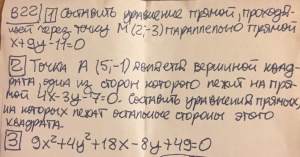 В22 1 Составить уравнение прямой, проходя-
щей через точку M (2;-3) параллельно прямой
x+9y-11=0
2 Точка A (5;-1) является вершиной квад-
рата, одна из сторон которого лежит на пря-
мой 4x-3y-7=0. Составить уравнения прямых,
на которых лежат остальные стороны этого
квадрата.
3 9x²+4y²+18x-8y+49=0